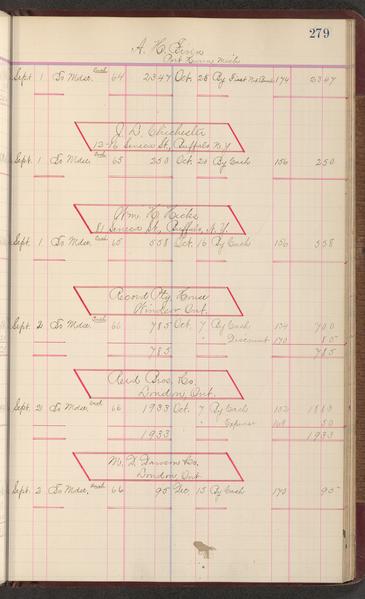 279
A. H.
Port Huron Mich
Sept. 1 To Mdse. 64 23 47 Oct. 28 By First Nat Bank 174 23 47
J. D. Chichester
12-16 Seneca St., Buffalo N.Y.
Sept. 1 To Mdse. 65 2 50 Oct. 20 By Cash 156 2 50
Wm. H. Hicks
81 Seneca St., Buffalo, N.Y.
Sept. 1 To Mdse. 65 5 58 Oct. 16 By Cash 156 5 58
Record Ptg. House
Windsor Ont.
Sept. 2 To Mdse. 66 7 85 Oct. 7 By Cash 154 7 00
" Discount 170 85
7 85 7 85
Reid Bros. Co.
London, Ont.
Sept. 2 To Mdse. 66 19 33 Oct. 7 By Cash 152
" Expense 50
19 33 19 33
London, Ont
Sept. 2 To Mdse. 66 95 Dec. 15 By Cash 95